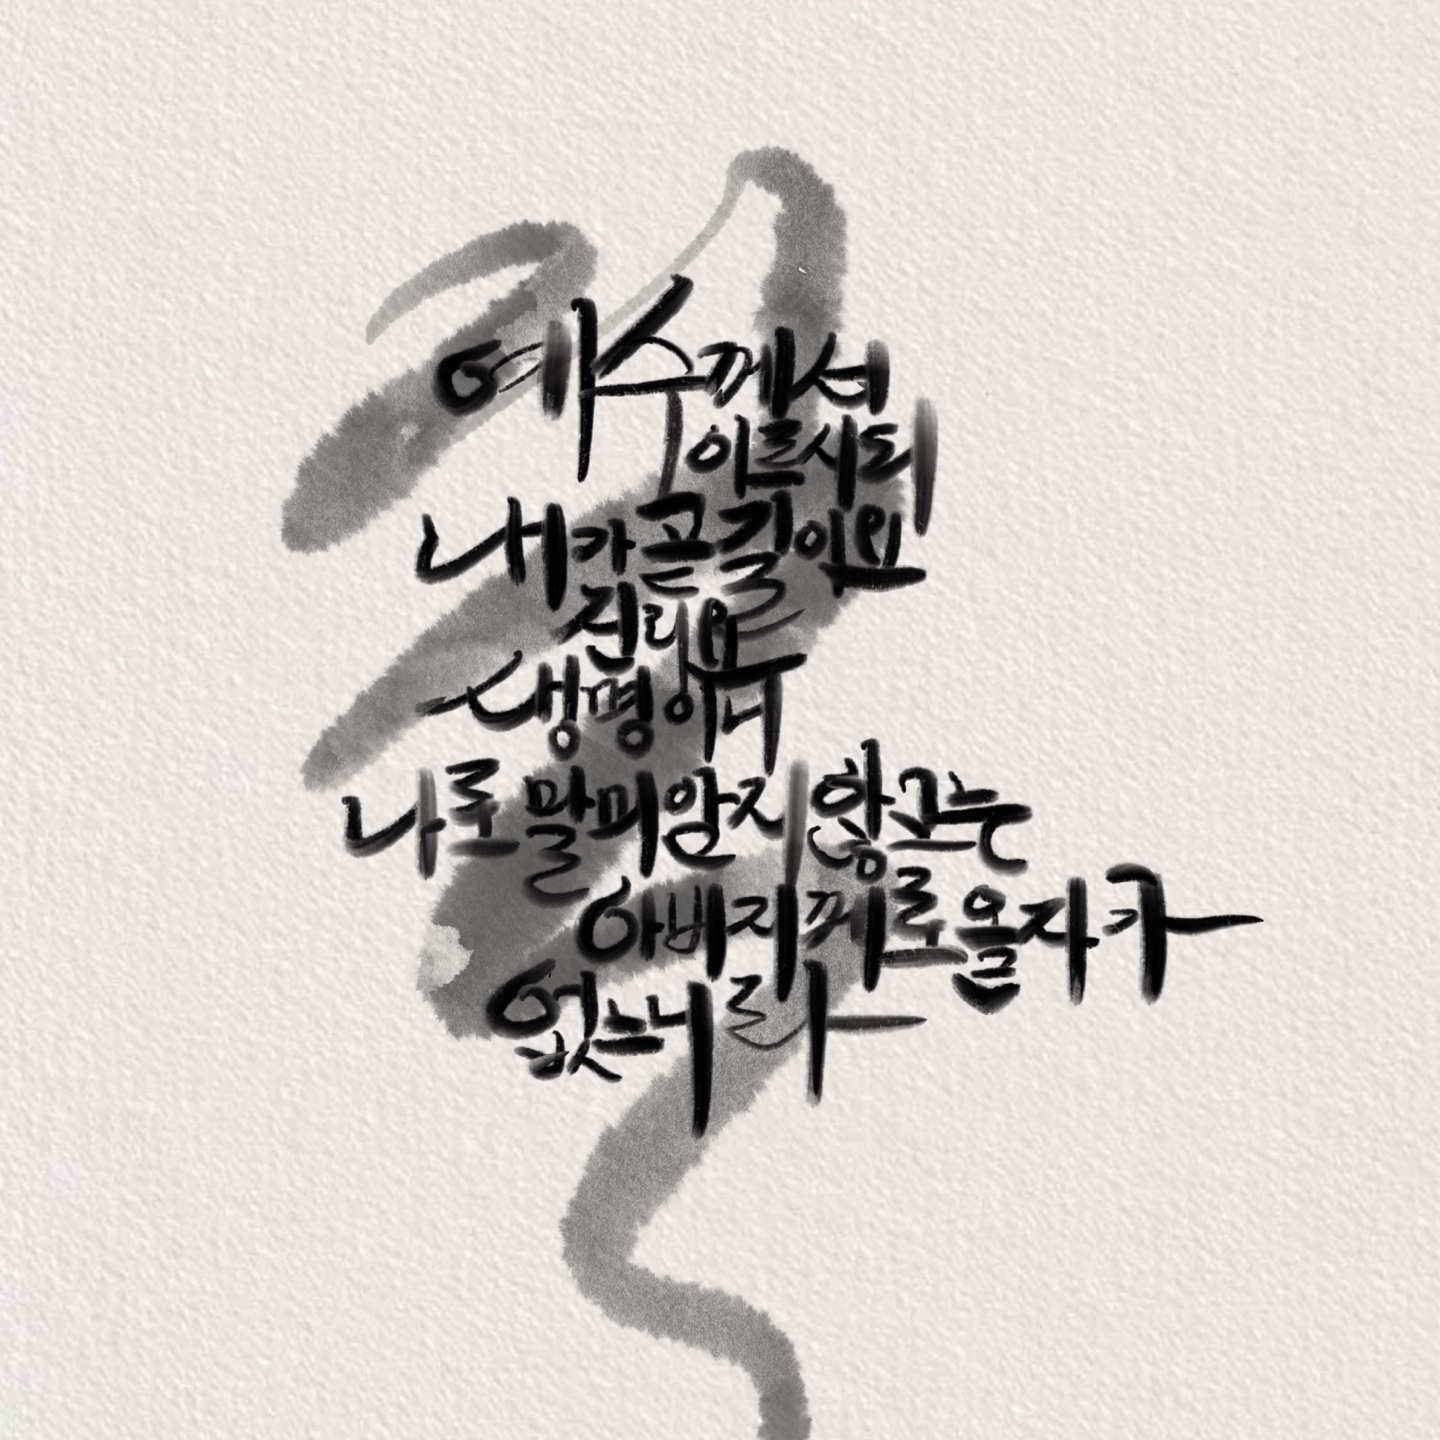 예수께서
이르시되
내가 곧 길이요
진리요
생명이니
나로 말미암지 않고는
아버지께로 올 자가
없느니라